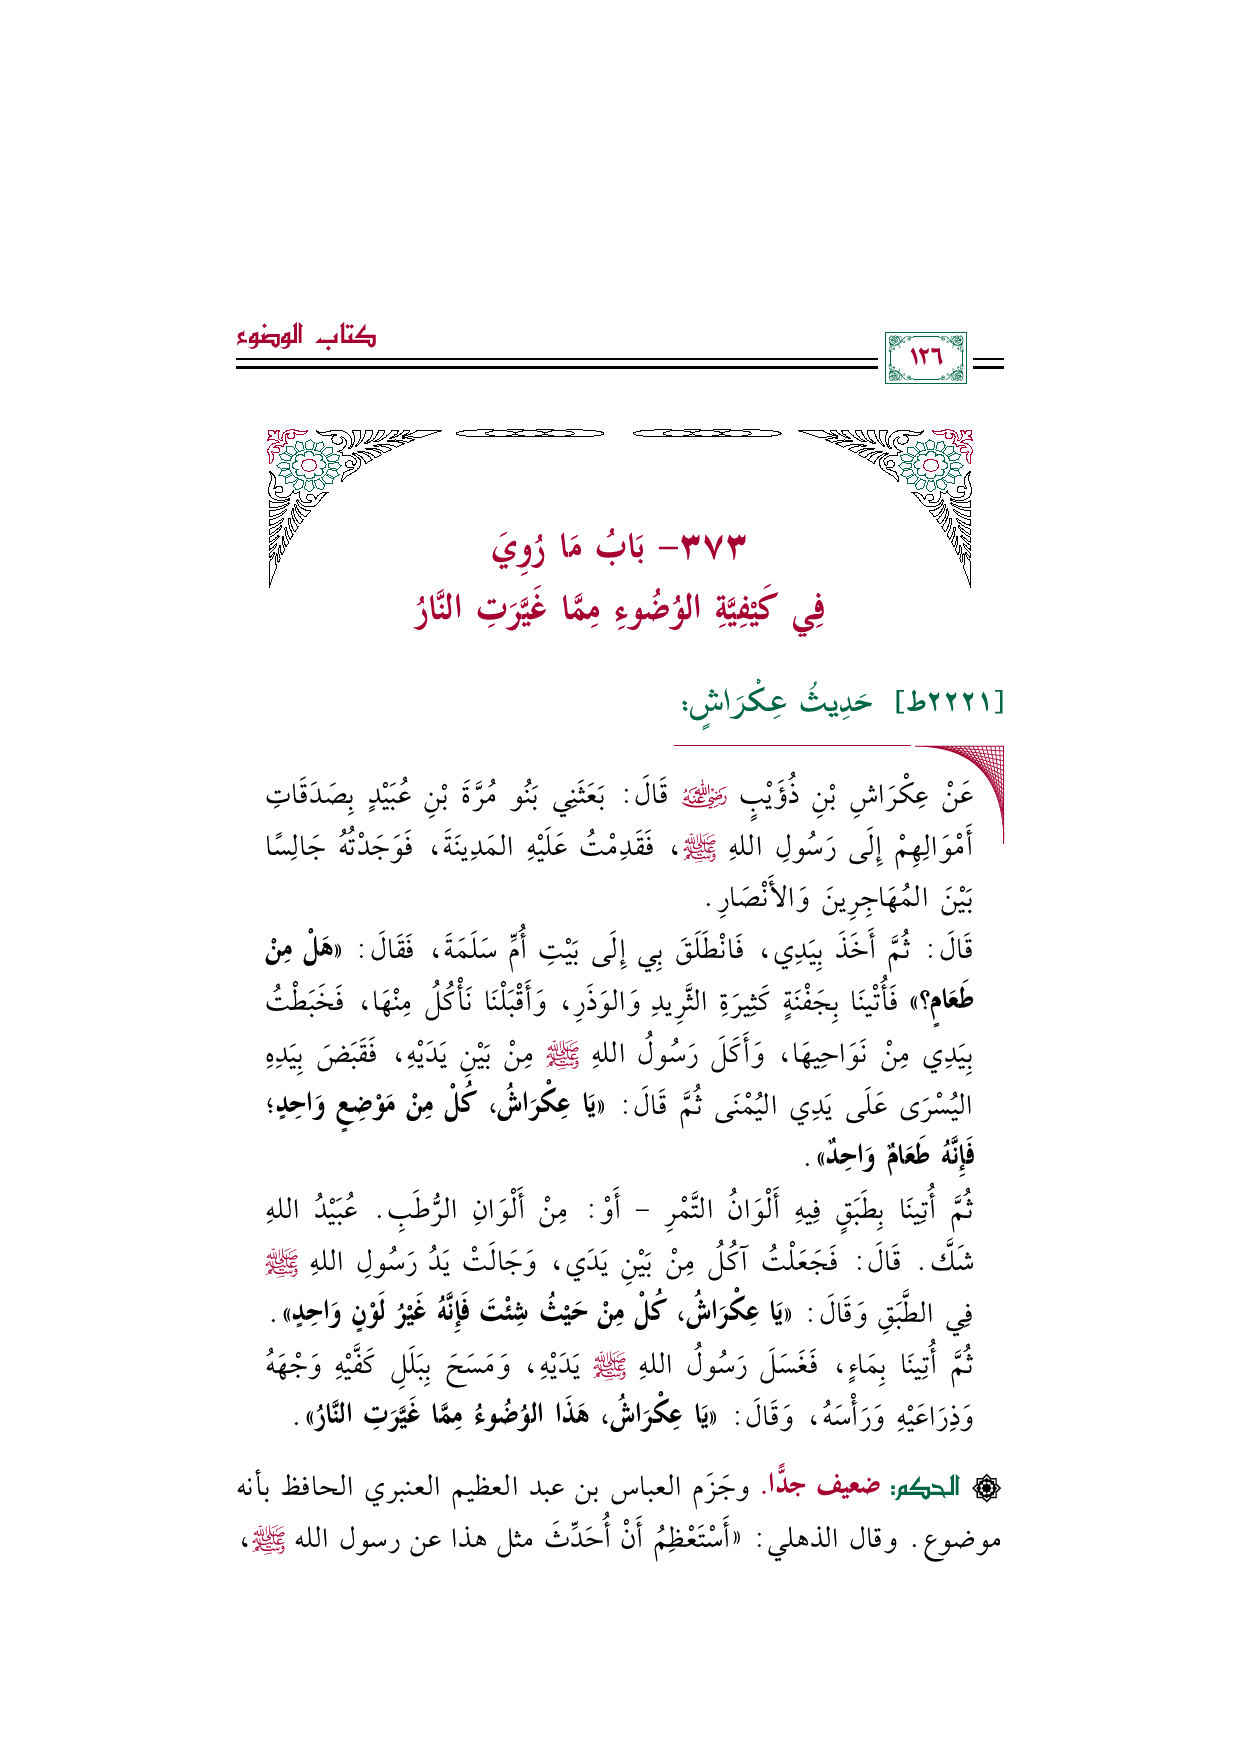 كتاب الوضوء
١٢٦
٣٧٣- بَابُ مَا رُوِيَ
فِي كَيْفِيَّةِ الوُضُوءِ مِمَّا غَيَّرَتِ النَّارُ
[٢٢٢١ط] حَدِيثُ عِكْرَاشٍ:
عَنْ عِكْرَاشِ بْنِ ذُؤَيْبٍ رضي الله عنه قَالَ: بَعَثَنِي بَنُو مُرَّةَ بْنِ عُبَيْدٍ بِصَدَقَاتِ
أَمْوَالِهِمْ إِلَى رَسُولِ اللهِ ﷺ، فَقَدِمْتُ عَلَيْهِ المَدِينَةَ، فَوَجَدْتُهُ جَالِسًا
بَيْنَ المُهَاجِرِينَ وَالأَنْصَارِ.
قَالَ: ثُمَّ أَخَذَ بِيَدِي، فَانْطَلَقَ بِي إِلَى بَيْتِ أُمِّ سَلَمَةَ، فَقَالَ: «هَلْ مِنْ
طَعَامٍ؟» فَأُتْينَا بِجَفْنَةٍ كَثِيرَةِ الثَّرِيدِ وَالوَذَرِ، وَأَقْبَلْنَا نَأْكُلُ مِنْهَا، فَخَبَطْتُ
بِيَدِي مِنْ نَوَاحِيهَا، وَأَكَلَ رَسُولُ اللهِ ﷺ مِنْ بَيْنِ يَدَيْهِ، فَقَبَضَ بِيَدِهِ
اليُسْرَى عَلَى يَدِي اليُمْنَى ثُمَّ قَالَ: «يَا عِكْرَاشُ، كُلْ مِنْ مَوْضِعٍ وَاحِدٍ؛
فَإِنَّهُ طَعَامٌ وَاحِدٌ».
ثُمَّ أُتِينَا بِطَبَقٍ فِيهِ أَلْوَانُ التَّمْرِ – أَوْ: مِنْ أَلْوَانِ الرُّطَبِ. عُبَيْدُ اللهِ
شَكَّ. قَالَ: فَجَعَلْتُ آكُلُ مِنْ بَيْنِ يَدَي، وَجَالَتْ يَدُ رَسُولِ اللهِ ﷺ
فِي الطَّبَقِ وَقَالَ: «يَا عِكْرَاشُ، كُلْ مِنْ حَيْثُ شِئْتَ فَإِنَّهُ غَيْرُ لَوْنٍ وَاحِدٍ».
ثُمَّ أُتِينَا بِمَاءٍ، فَغَسَلَ رَسُولُ اللهِ ﷺ يَدَيْهِ، وَمَسَحَ بِبَلَلِ كَفَّيْهِ وَجْهَهُ
وَذِرَاعَيْهِ وَرَأْسَهُ، وَقَالَ: «يَا عِكْرَاشُ، هَذَا الوُضُوءُ مِمَّا غَيَّرَتِ النَّارُ».
الحكم: ضعيف جدًّا. وجَزَم العباس بن عبد العظيم العنبري الحافظ بأنه
موضوع. وقال الذهلي: «أَسْتَعْظِمُ أَنْ أُحَدِّثَ مثل هذا عن رسول الله ﷺ،